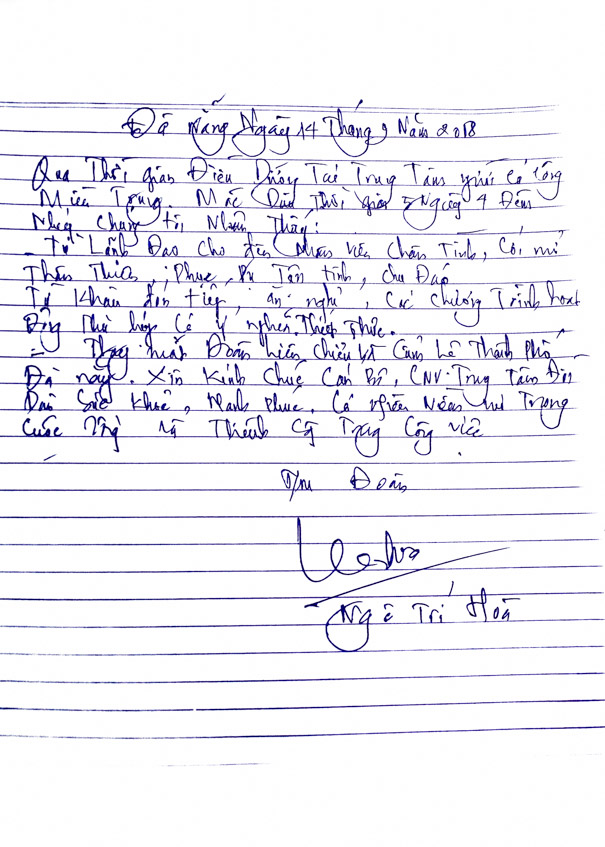 Đà Nẵng Ngày 14 Tháng 9 Năm 2018
Qua Thời gian Điều Dưỡng Tại Trung Tâm người Có Công
Miền Trung. Mặc Dù Thời gian 5 Ngày 4 Đêm
Nhưng chúng tôi Nhận Thấy:
- Từ Lãnh Đạo cho đến nhân viên Chân Tình, Cởi mở
Thân Thiện, Phục Vụ Tận tình, chu Đáo
Từ Khâu đón tiếp, ăn nghỉ, Các chương Trình hoạt
Động Phù hợp Có ý nghĩa Thiết Thực.
- Thay mặt Đoàn Cẩm Lệ Thành Phố
Đà nẵng. Xin Kính Chúc Cán Bộ, CNV Trung Tâm Dồi
Dào Sức Khoẻ, Hạnh Phúc. Có nhiều Niềm vui Trong
Cuộc Sống và Thành Công Trong Công việc
T/m Đoàn
Ngô Trí Hoà